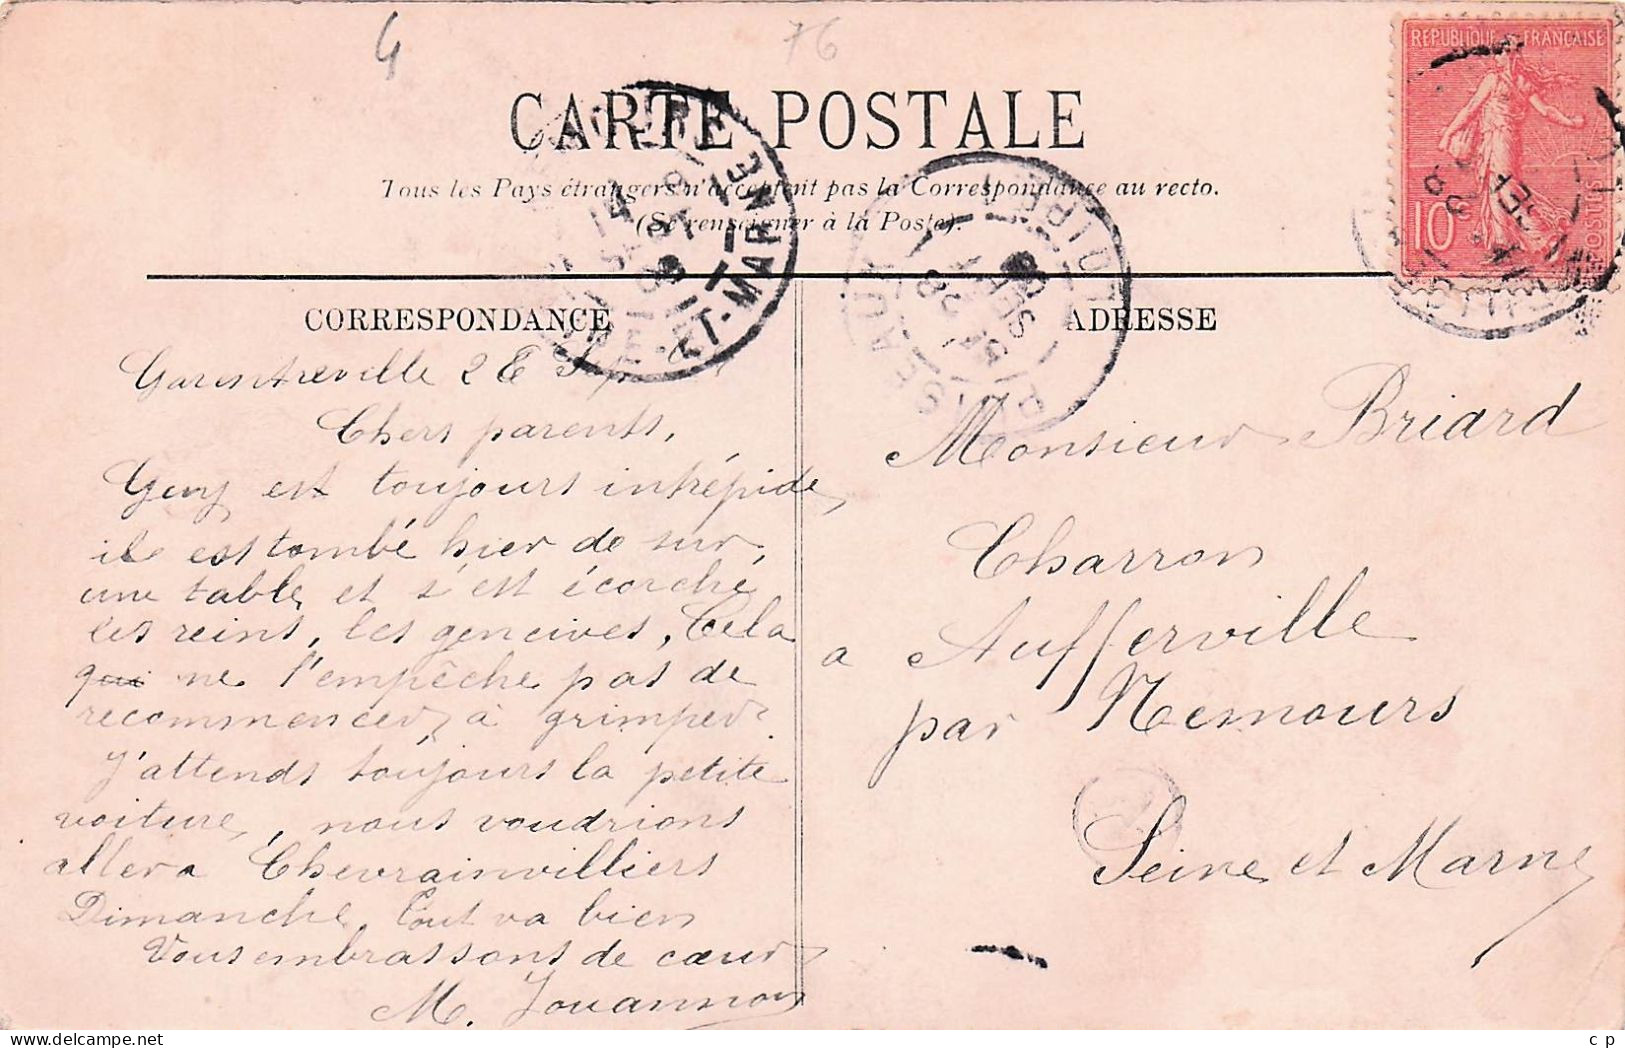 4
76
RÉPUBLIQUE FRANÇAISE
10
CARTE POSTALE
Tous les Pays étrangers n'acceptent pas la Correspondance au recto.
(Se renseigner à la Poste).
ET-MARNE
CORRESPONDANCE
Garentreville 28 Sept
Chers parents,
Guy est toujours intrépide,
il est tombé hier de sur
une table et s'est écorché
les reins, les gencives, Cela
qui ne l'empêche pas de
recommencer, à grimper.
J'attends toujours la petite
voiture, nous voudrions
aller à Chevrainvilliers
Dimanche, Tout va bien
Vous embrassons de cœur
M. Jouannon
ADRESSE
Monsieur Briard
Charron
a Aufferville
par Nemours
Seine et Marne